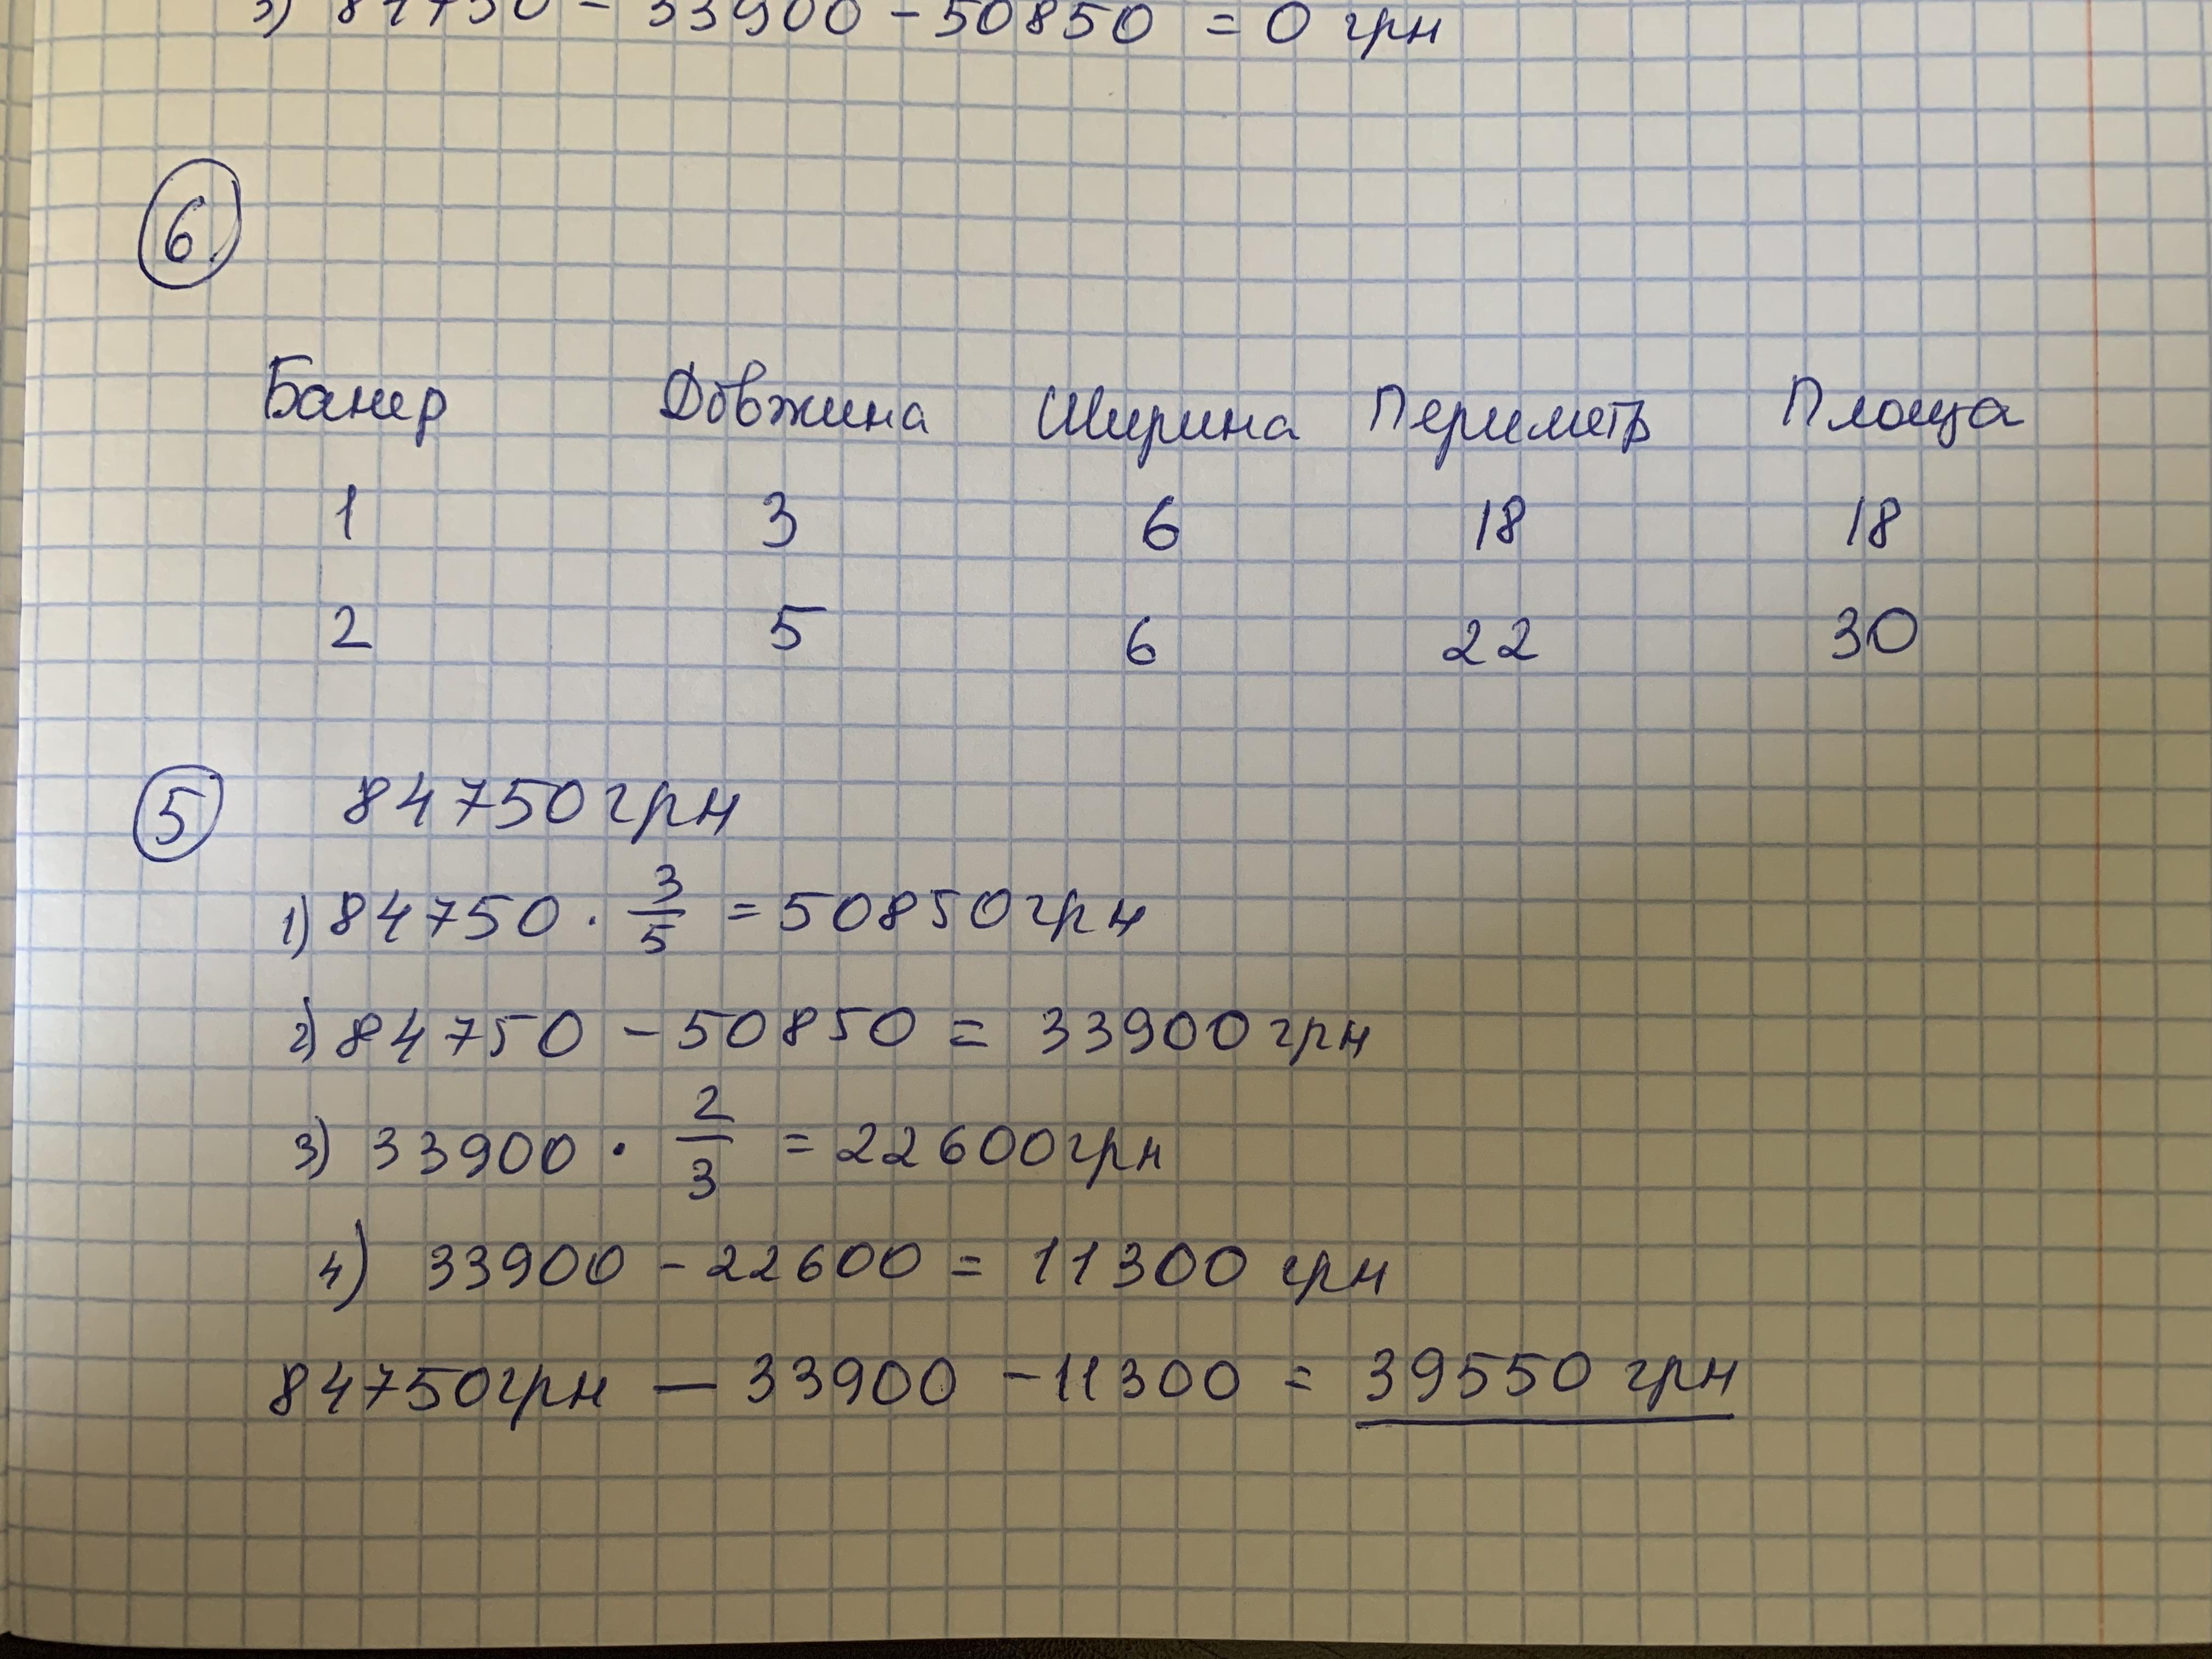 3) 84750 - 33900 - 50850 = 0 грн
6
Банер Довжина Ширина Периметр Площа
1 3 6 18 18
2 5 6 22 30
5 84750 грн
1) 84750 · 3/5 = 50850 грн
2) 84750 - 50850 = 33900 грн
3) 33900 · 2/3 = 22600 грн
4) 33900 - 22600 = 11300 грн
84750 грн — 33900 - 11300 = 39550 грн